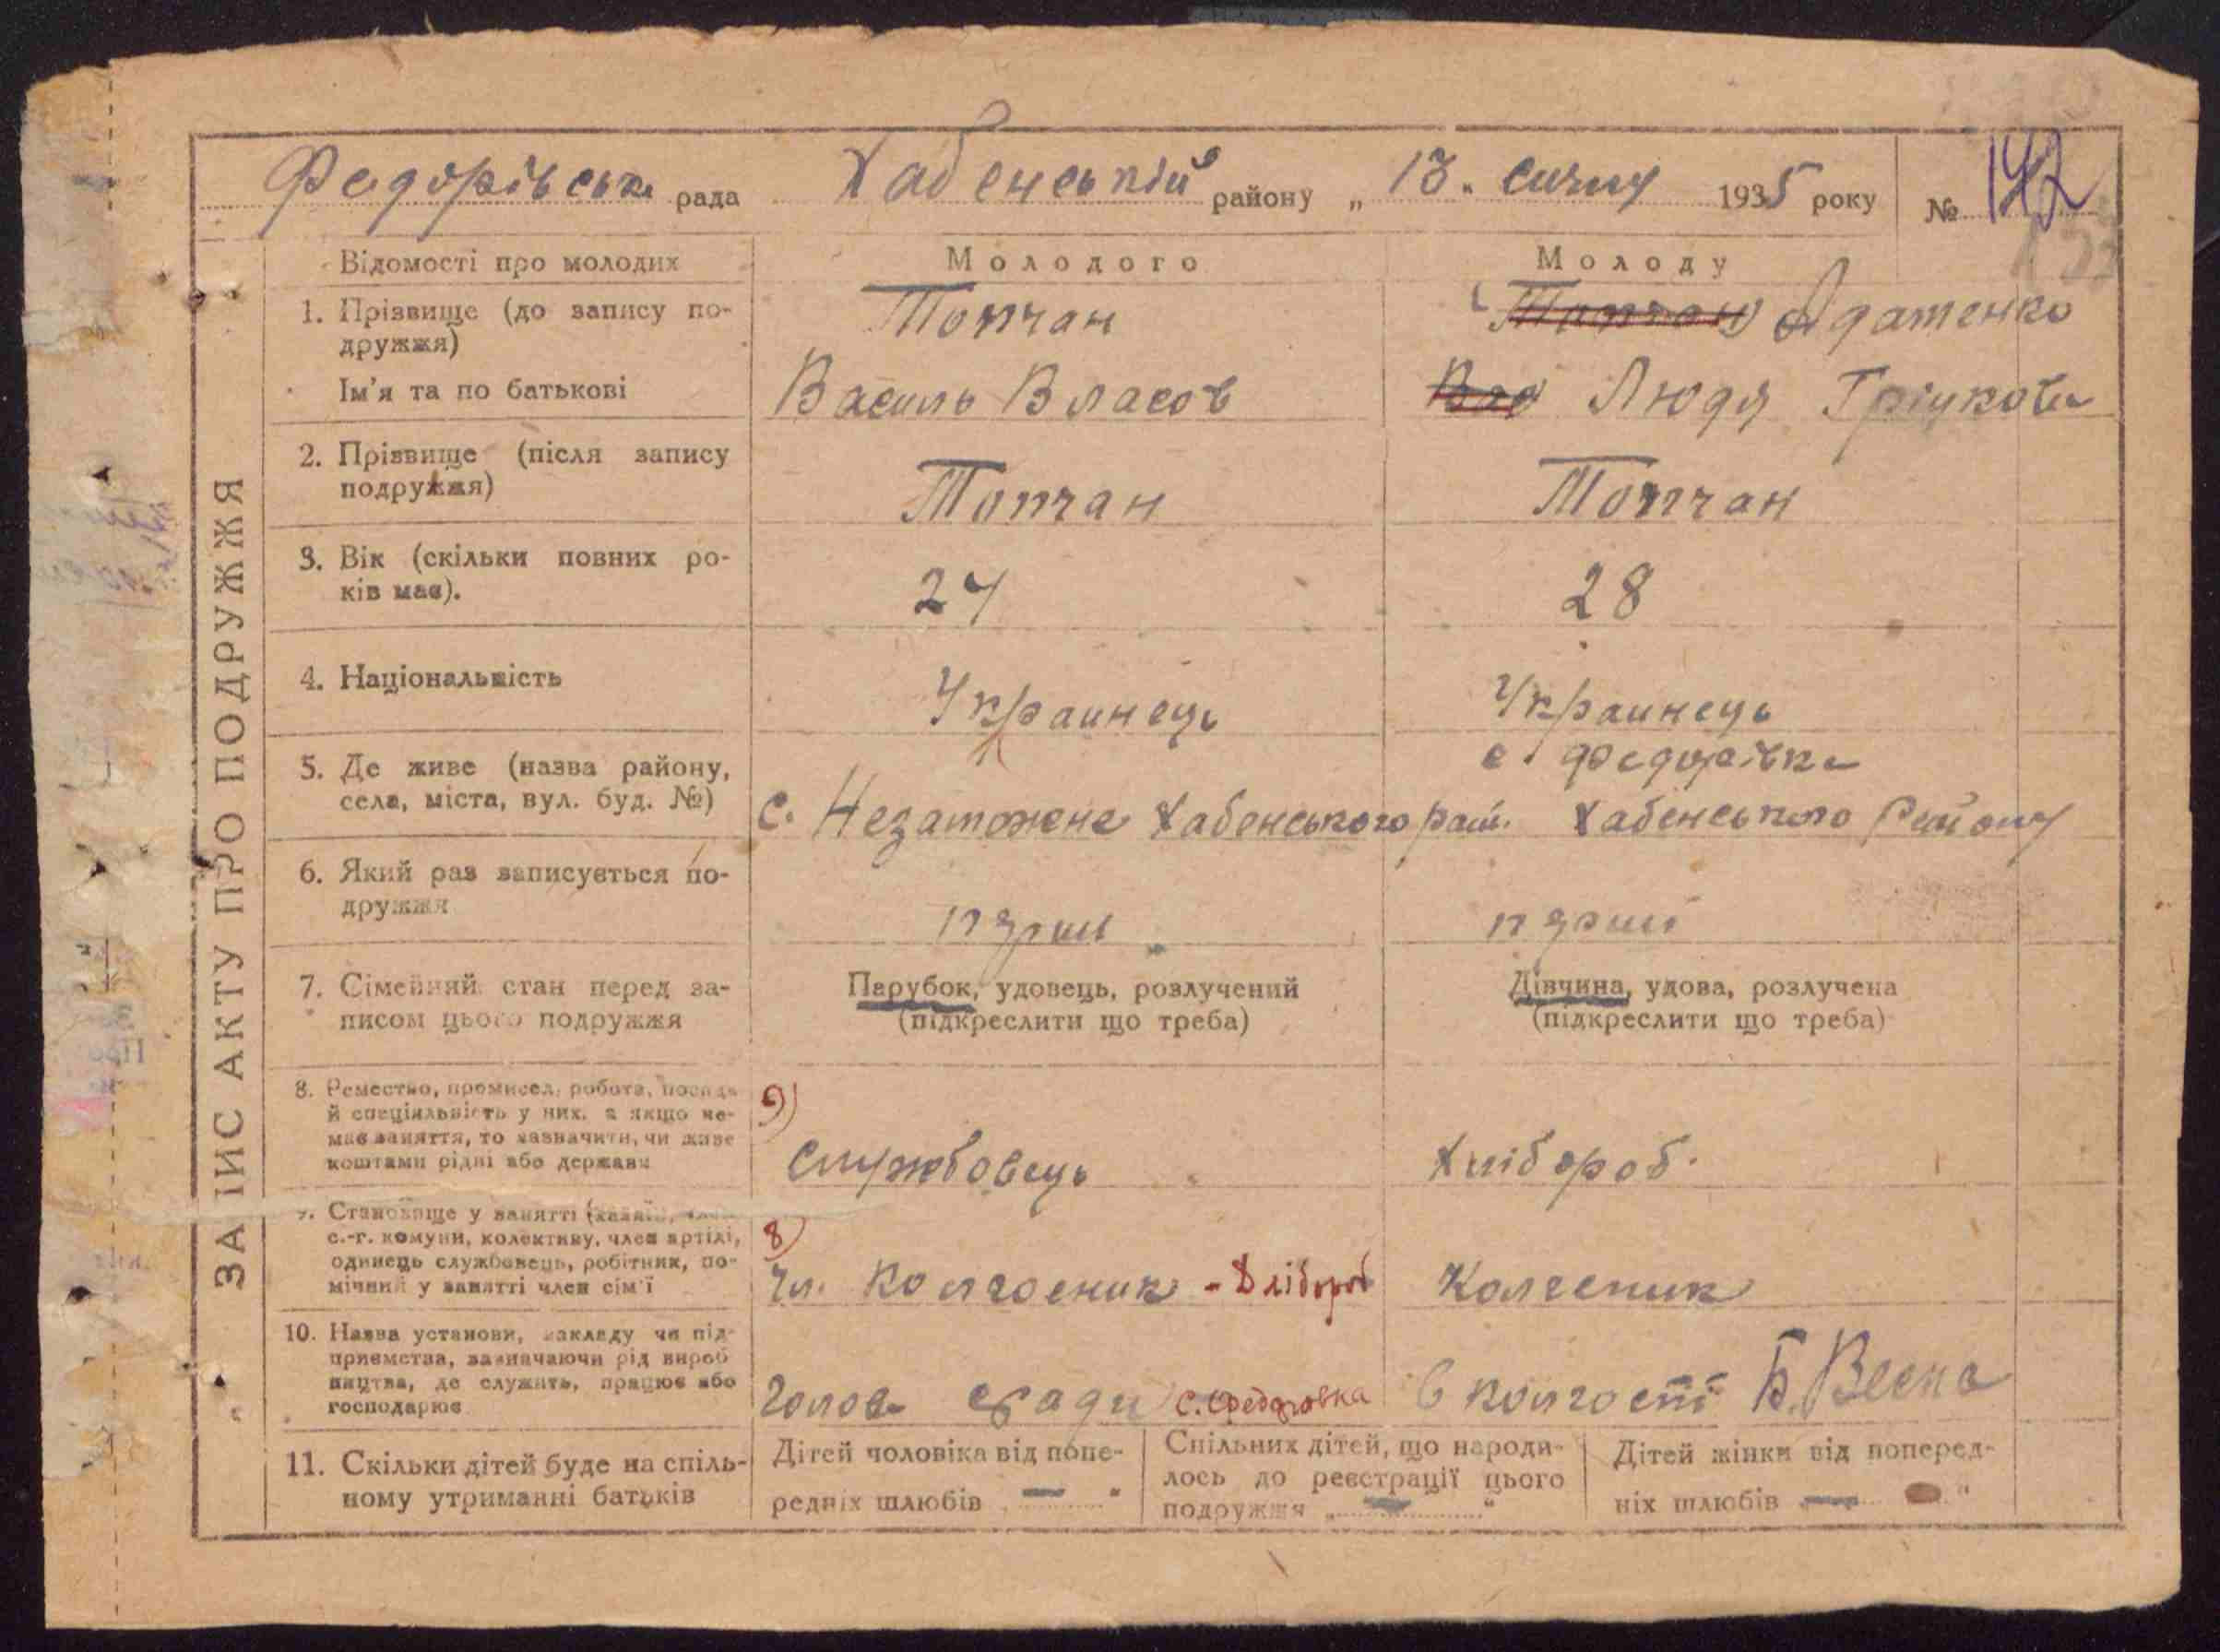 Федорівська рада Хабенський району „13" січня 1935 року № 142
ЗАПИС АКТУ ПРО ПОДРУЖЖЯ
Відомості про молодих Молодого Молоду
1. Прізвище (до запису по-
дружжя)
Топчан Топчан Адаменко
Ім'я та по батькові Василь Власов Людя Грицкова
2. Прізвище (після запису
подружжя)
Топчан Топчан
3. Вік (скільки повних ро-
ків має).
24 28
4. Національність
Украинець Украинець
5. Де живе (назва району,
села, міста, вул. буд. №)
с. Незаможне Хабенського рай.
с. Федорівка
Хабенського Району
6. Який раз записується по-
дружжя
7. Сімейний стан перед за-
писом цього подружжя
Парубок, удовець, розлучений
(підкреслити що треба)
Дівчина, удова, розлучена
(підкреслити що треба)
8. Ремество, промисел, робота, посада
й спеціяльність у них, а якщо не-
має заняття, то зазначити, чи живе
коштами рідні або держави
9)
службовець Хлібороб.
9. Становище у занятті (хазяїн, член
с.-г. комуни, колективу, член артілі,
одинець службовець, робітник, по-
мічний у занятті член сім'ї
8)
чл. Колгосник - Хлібороб Колгсник
10. Назва установи, закладу чи під-
приємства, зазначаючи рід вироб
ництва, де служить, працює або
господарює
Голова с/ради с. Федоровка в колгоспі Б. Весна
11. Скільки дітей буде на спіль-
ному утриманні батьків
Дітей чоловіка від попе-
редніх шлюбів „ — "
Спільних дітей, що народи-
лось до реєстрації цього
подружжя „ — "
Дітей жінки від поперед-
ніх шлюбів „ — "